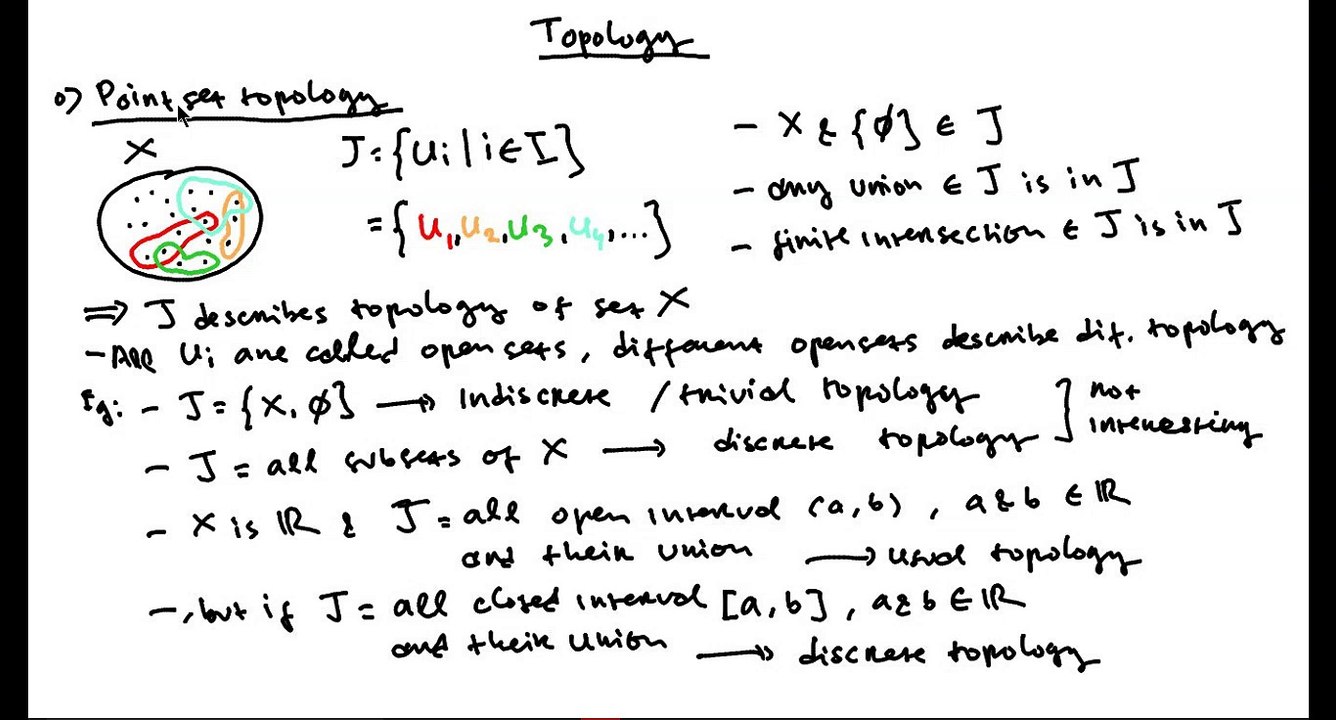 Topology
o) Point set topology
X
J = {Ui | i ∈ I}
= {U1, U2, U3, U4, ...}
- X & {ϕ} ∈ J
- any union ∈ J is in J
- finite intersection ∈ J is in J
⇒ J describes topology of set X
- All Ui are called open sets, different opensets describe dif. topology
Eg: - J = {X, ϕ} → Indiscrete / trivial topology
- J = all subsets of X → discrete topology
] not interesting
- X is ℝ & J = all open interval (a, b), a & b ∈ ℝ
and their union → usual topology
-, but if J = all closed interval [a, b], a & b ∈ ℝ
and their union → discrete topology